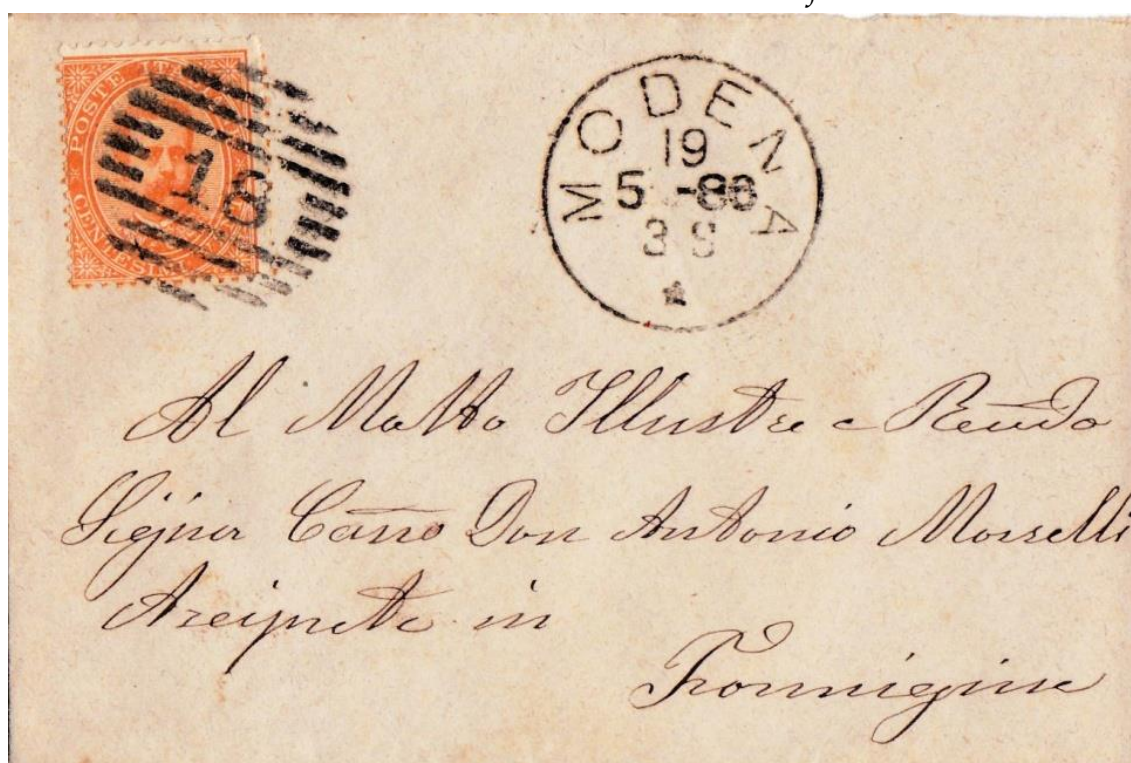 POSTE ITA
CENTESIM
18
MODENA
19
5 -86
3 S
Al Molto Illustre e Rendo
Signor Cano Don Antonio Morselli
Arciprete in
Formigine